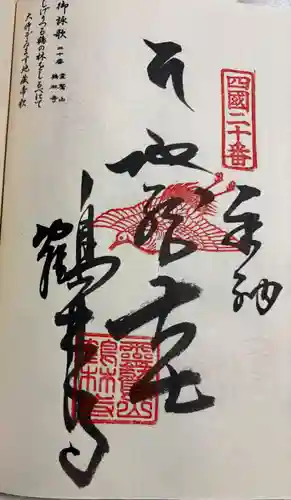 四國二十番
奉納
地蔵尊
鶴林寺
霊鷲山
鶴林寺
御詠歌 二十番 霊鷲山 鶴林寺
しげりつる鶴の林をしるべにて
大師ぞいます地蔵帝釈